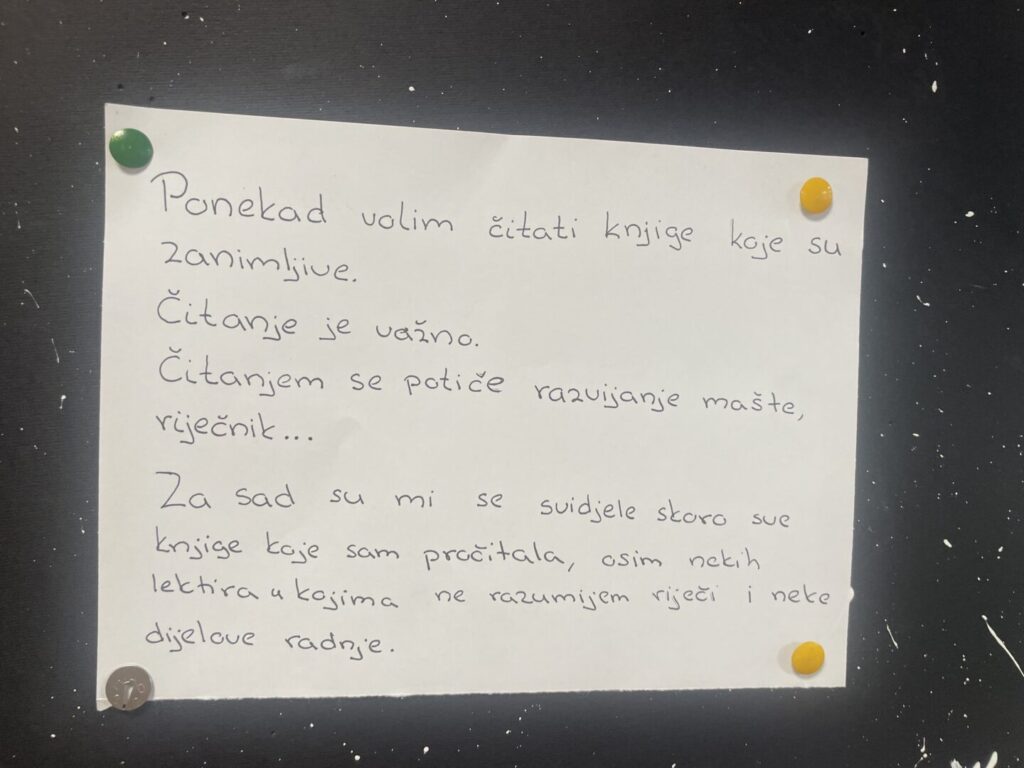 Ponekad volim čitati knjige koje su
zanimljive.
Čitanje je važno.
Čitanjem se potiče razvijanje mašte,
riječnik...
Za sad su mi se svidjele skoro sve
knjige koje sam pročitala, osim nekih
lektira u kojima ne razumijem riječi i neke
dijelove radnje.